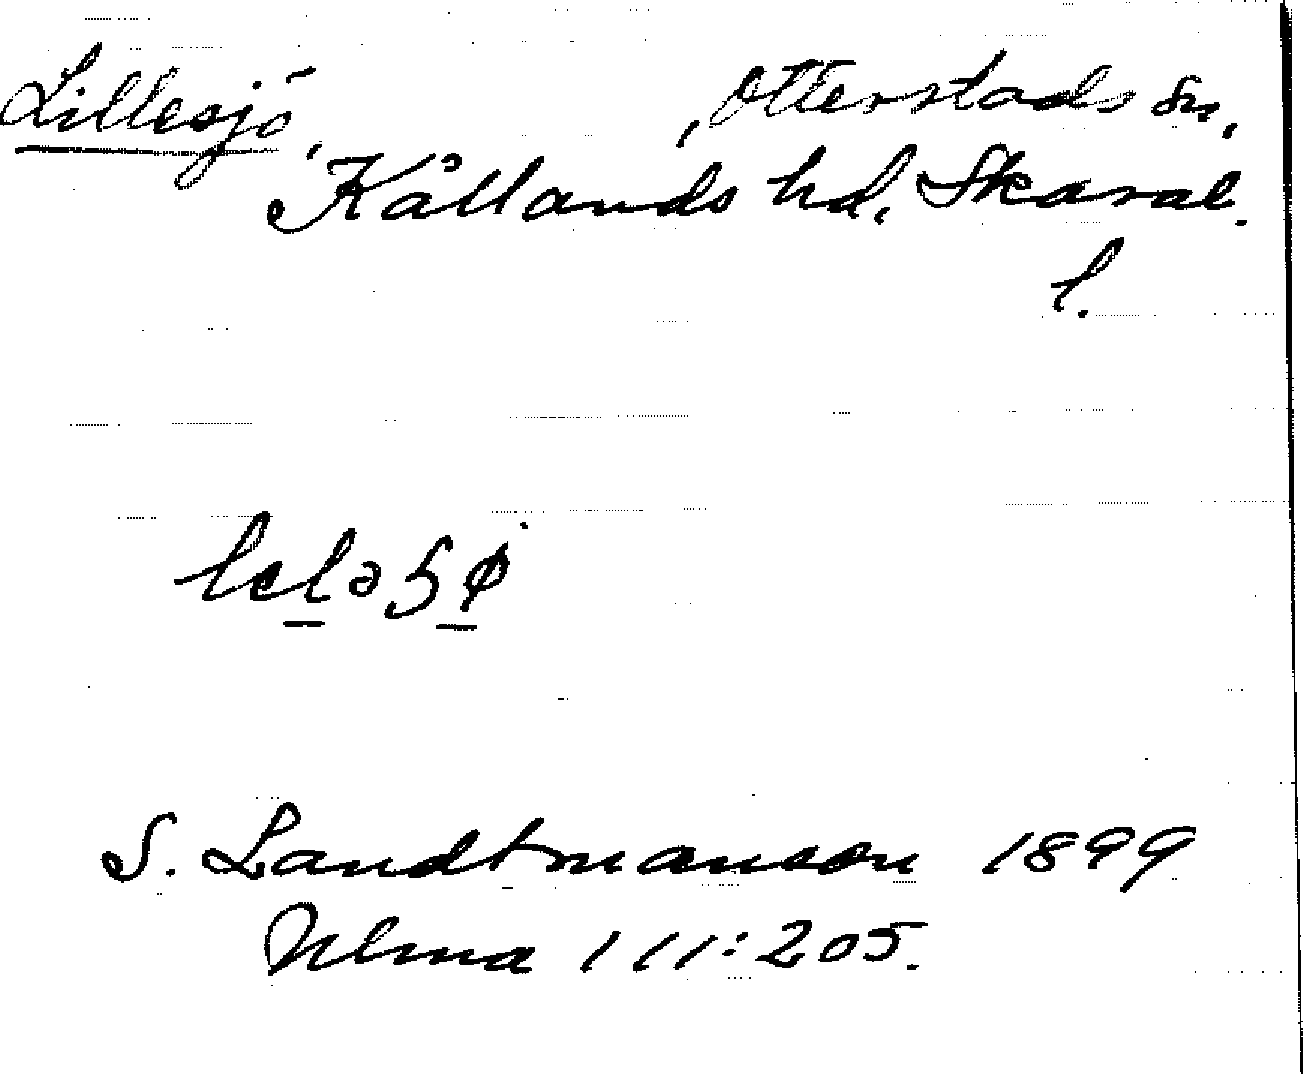 Lillesjö, Otterstads sn,
Kållands hd, Skarab.
l.
S. Landtmanson 1899
Ulma 111:205.